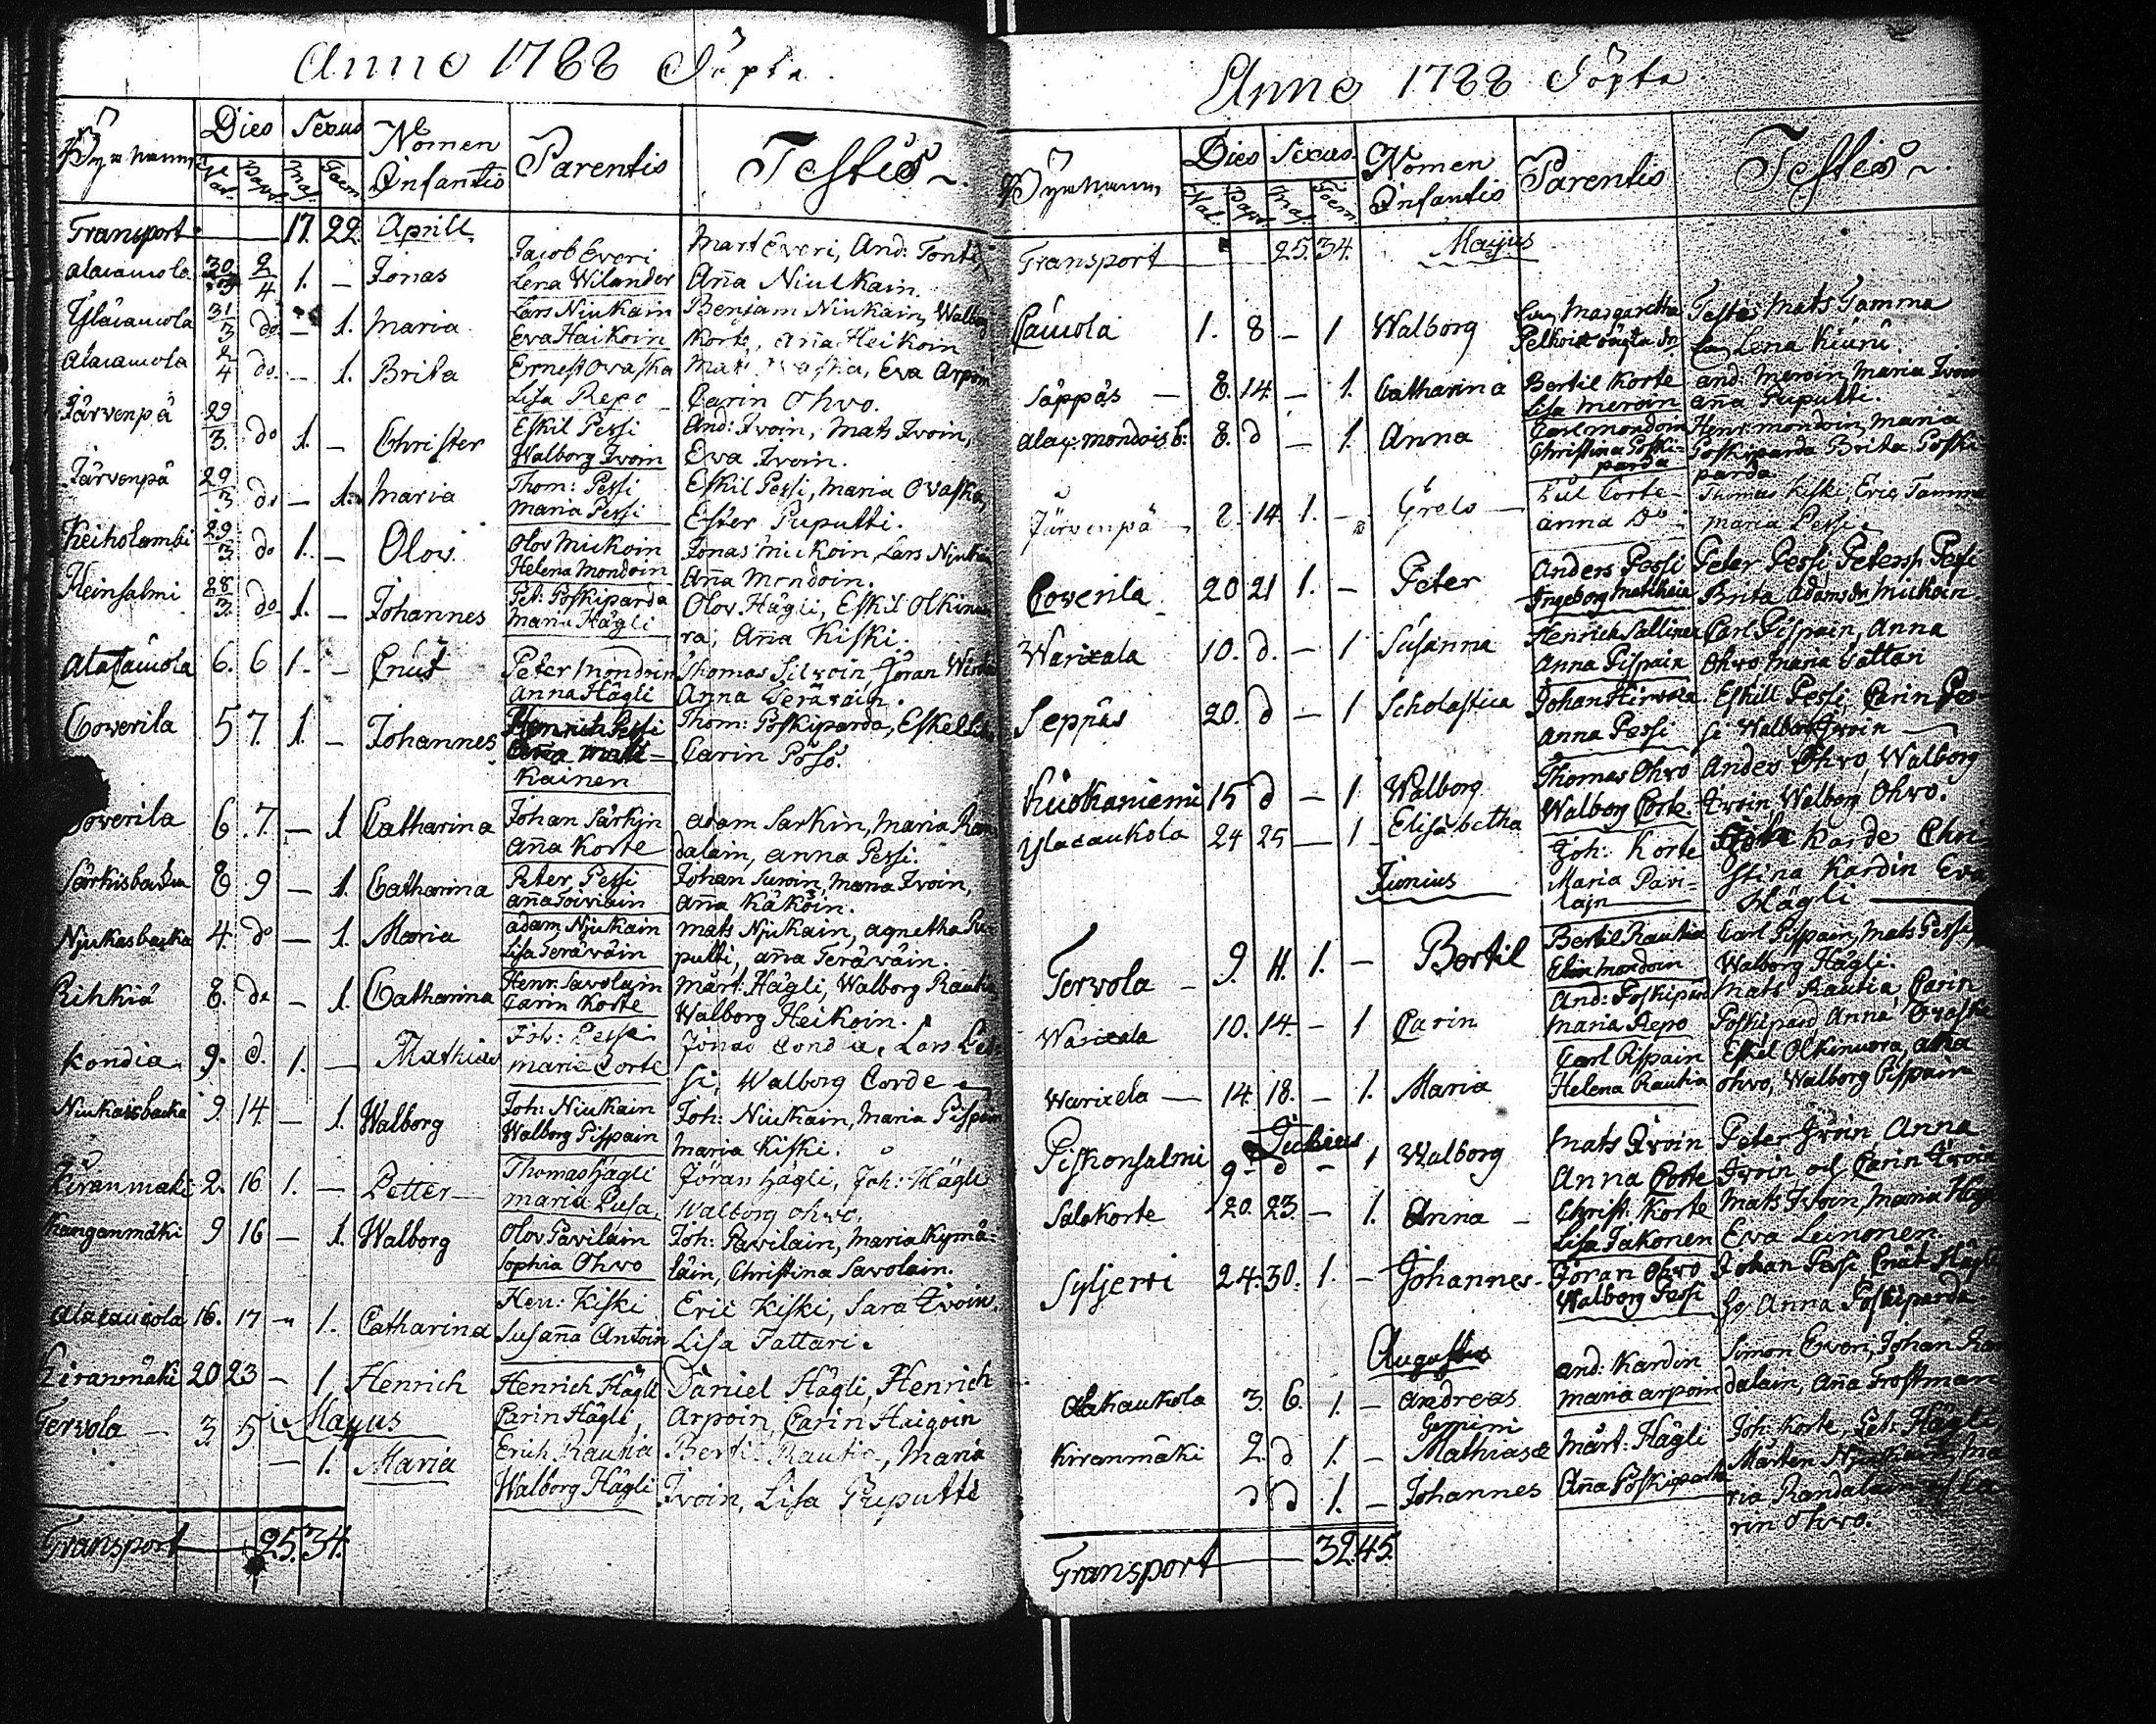 Anno 1788 Döpta
Byanamn Dies Sexus Nomen Infantis Parentis Testes
Nat. Bapt. Mas. Foem.
Transport 17. 22. Aprill
Alacaucola 30/3 2/4 1. – Jonas Jacob Everi Mart Everi, And: Tonti,
Lena Wilander Aña Niukain.
Yläcaucola 31/3 do – 1. Maria Lars Niukain Benjam Niukain, Walborg
Eva Haikoin Korte, aña Heikoin
Alacaucola 2/4 do. – 1. Brita Ernest Ovaska Mats Ovaska, Eva Arpoin
Lisa Repo Carin Ohvo.
Järvenpä 29/3. do 1. – Christer Eskil Pessi And: Ivoin, Mats Ivoin,
Walborg Ivoin Eva Ivoin.
Järvenpä 29/3 do – 1. Maria Thom: Pessi Eskil Pessi, Maria Ovaska,
Maria Pessi Ester Puputti.
Keiholambi 29/3. do 1. – Olov. Olov Mickoin Jonas Mickoin, Lars Njukain
Helena Mondoin Aña Mondoin.
Heinsalmi 28/3. do 1. – Johannes Pet: Poskiparda Olov Hägli, Eskil Olkinuo
Maria Hägli ra, Aña Kiski.
Alacaucola 6. 6 1. – Cnut Peter Mondoin Thomas Silvoin, Jöran
Anna Hägli Anna Teräväin.
Coverila 5 7. 1. – Johannes Henrich Pessi Thom: Poskiparda, Eskel
Aña Mati= Carin Pösö.
kainen
Coverila 6. 7. – 1 Catharina Johan Särkin Adam Sarkin, Maria Ran
aña Korte dalain, Anna Pessi.
Särkisbacka 8 9 – 1. Catharina Peter Pessi Johan Suroin, Maria Ivoin,
aña Toiviain Aña Käköin.
Njukasbacka 4. do – 1. Maria Adam Njukain Mats Njukain, Agnetha Pu
Lisa Teräväin putti, aña Teräwäin.
Rihkiä 8. do – 1. Catharina Henr: Savolain Märt: Hägli, Walborg Rautia
Carin Korte Walborg Heikoin.
Kondia 9. d. 1. – Mathias Joh: Pessi Jonas Condia, Lars Pes
Maria Corte si, Walborg Corde
Niukaisbacka 9. 14. – 1. Walborg Joh: Niukain Joh: Niukain, Maria Pispain
Walborg Pispain Maria Kiski.
Kiranmäki 2. 16 1. – Petter Thomas Hägli Jöran Hägli, Joh: Hägli
Maria Pusa Walborg Ohvo.
Kanganmäki 9 16 – 1. Walborg Olov Pavilain Joh: Pavilain, Maria Kymä=
Sophia Ohvo läin, Christina Savolain.
Alacaucola 16. 17 – 1. Catharina Hen: Kiski Eric Kiski, Sara Ivoin,
Susaña Antoin Lisa Tattari.
Kiranmäki 20 23 – 1 Henrich Henrich Hägli Daniel Hägli, Henrich
Carin Hägli, Arpoin, Carin Haigoin
Majus
Tervola 3. 5 – 1. Maria Erich Rautia Bertil Rautia, Maria
Walborg Hägli Ivoin, Lisa Puputti
Transport 25. 34.
Anno 1788 Döpta
Byanamn Dies Sexus Nomen Infantis Parentis Testes
Nat. Bapt. Mas. Foem.
Transport 25. 34. Majus
Caucola 1. 8 – 1 Walborg Margaretha Testes Mats Tamma
Pelkoin oägta dr. Lena Kiuru.
Säppäs 8. 14. – 1. Catharina Bertil Korte And: Meroin, Maria Ivoin
Lisa Meroin aña Puputti.
Alaç. mondois b: 8. d – 1. Anna Carl Mondoin Henr: Mondoin, Maria
Christina Poski= Poskiparda Brita Poski
parda parda
Järvenpä 8. 14 1. – Grels Corte Thomas Kiski Eric Tamma
Anna Do Maria Pessi.
Coverila 20 21 1. – Peter Anders Pessi Peter Pessi Peterss. Pessi
Ingeborg Brita Adamsdr Mickoin
Warixala 10. d. – 1 Susanna Henrich Sallinen Carl Pispain, Anna
Anna Pispain Ohvo, Maria Tattari
Seppäs 20. d – 1 Scholastica Johan Hirvola Eskill Pessi, Carin Pes
Anna Pessi si Walborg Ivoin
Kuokaniemi 15 d – 1 Walborg Thomas Ohvo Anders Ohvo, Walborg
Walborg Corte. Ivoin Walborg Ohvo.
Ylacaukola 24 25 – 1 Elisabetha Joh: Korte Karde Chri
Junius Maria Pavi= stina Kardin Eva
lajn Hägli
Tervola 9. 11. 1. – Bertil Bertil Rautia Carl Pispain, Mats Pessi,
Elin Mondoin Walborg Hägli.
Warixala 10. 14. – 1 Carin And: Poskipar Mats Rautia, Carin
Maria Repo Poskipard Anna Ovaska
Warixela 14. 18. – 1. Maria Carl Pispain Eskel Olkinuora, aña
Helena Rautia Ohvo, Walborg Pispain
Julius
Piskonsalmi 9. d – 1 Walborg Mats Ivoin Peter Ivoin Anna
Anna Corte Ivoin och Carin Ivoin
Salokorte 20. 23. – 1. Anna – Christ: Korte Mats Ivoin, Maria Hägli
Lisa Jakonen Eva Leinonen
Syljervi 24. 30. 1. – Johannes Jöran Ohvo Johan Pessi Cnut Hägli
Walborg Pessi Anna Poskiparda
Augustus
Alakaukola 3. 6. 1. – Andreas And: Kardin Simon Everi, Johan Ran
Maria Arpoin dalain, Aña Trostman
Gemini
Kirranmäki 2. d 1. – Mathias & Märt: Hägli Joh: Korte, Pet: Hägli
Mårten Njukain, Ma
d d 1. – Johannes Aña Poskiparda ria Randalain och Ca
rin Ohvo.
Transport 32. 45.